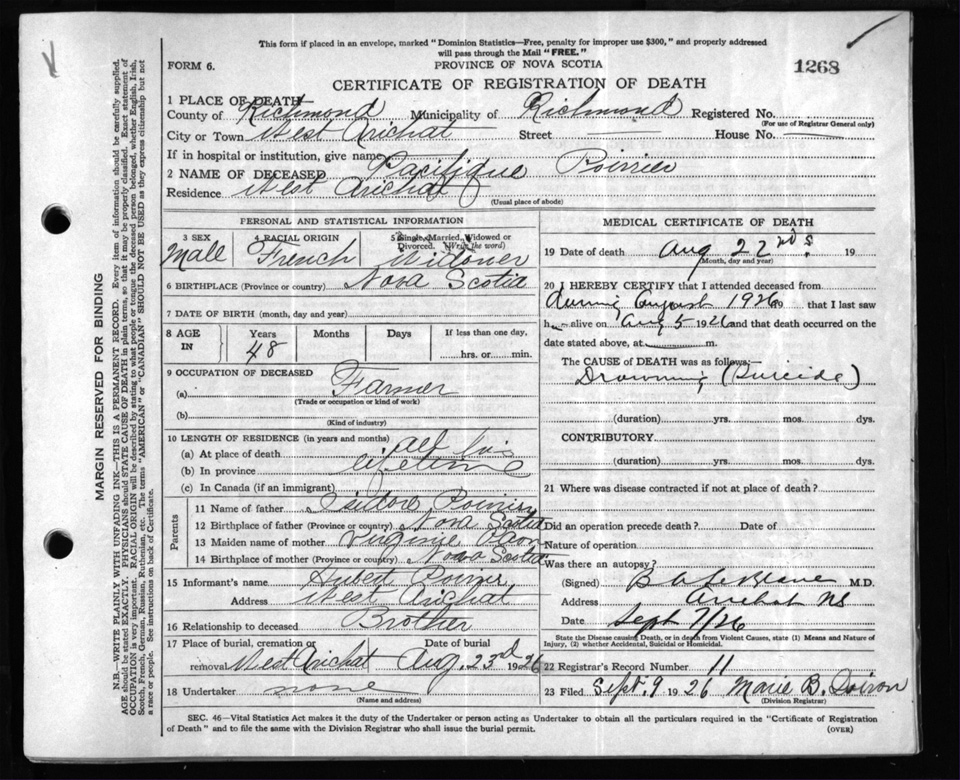 This form if placed in an envelope, marked "Dominion Statistics—Free, penalty for improper use $300," and properly addressed
will pass through the Mail "FREE."
FORM 6.
PROVINCE OF NOVA SCOTIA
1268
CERTIFICATE OF REGISTRATION OF DEATH
1 PLACE OF DEATH
County of Richmond Municipality of Richmond Registered No.
(For use of Registrar General only)
City or Town West Arichat Street House No.
If in hospital or institution, give name
2 NAME OF DECEASED Pacifique Poirier
Residence West Arichat
(Usual place of abode)
PERSONAL AND STATISTICAL INFORMATION
3 SEX 4 RACIAL ORIGIN 5 Single, Married, Widowed, Divorced. (Write the word)
Male French Widower
6 BIRTHPLACE (Province or country) Nova Scotia
7 DATE OF BIRTH (month, day and year)
8 AGE IN Years Months Days If less than one day,
48 hrs. or min.
9 OCCUPATION OF DECEASED
(a) Farmer
(Trade or occupation or kind of work)
(b)
(Kind of industry)
10 LENGTH OF RESIDENCE (in years and months)
(a) At place of death all his
(b) In province lifetime
(c) In Canada (if an immigrant)
Parents
11 Name of father Isidore Poirier
12 Birthplace of father (Province or country) Nova Scotia
13 Maiden name of mother Virginie
14 Birthplace of mother (Province or country) Nova Scotia
15 Informant's name Hubert Poirier
Address West Arichat
16 Relationship to deceased Brother
17 Place of burial, cremation or removal Date of burial
West Arichat Aug. 23rd 1926
18 Undertaker none
(Name and address)
MEDICAL CERTIFICATE OF DEATH
19 Date of death Aug 22nd 19
(Month, day and year)
20 I HEREBY CERTIFY that I attended deceased from
during August 1926 that I last saw
h alive on Aug 5 1926 and that death occurred on
date stated above, at m.
The CAUSE of DEATH was as follows:
Drowning (Suicide)
(duration) yrs. mos. dys.
CONTRIBUTORY
(duration) yrs. mos. dys.
21 Where was disease contracted if not at place of death?
Did an operation precede death? Date of
Nature of operation
Was there an autopsy?
(Signed) B A LeBlanc M.D.
Address Arichat NS
Date Sept 7/26
State the Disease causing Death, or in death from Violent Causes, state (1) Means and Nature of
Injury, (2) whether Accidental, Suicidal or Homicidal.
22 Registrar's Record Number 11
23 Filed Sept. 9 1926 Marie B. Doiron
(Division Registrar)
SEC. 46—Vital Statistics Act makes it the duty of the Undertaker or person acting as Undertaker to obtain all the particulars required in the "Certificate of Registration
of Death" and to file the same with the Division Registrar who shall issue the burial permit.
(OVER)
MARGIN RESERVED FOR BINDING
N.B. WRITE PLAINLY WITH UNFADING INK—THIS IS A PERMANENT RECORD. Every item of information should be carefully supplied.
AGE should be stated EXACTLY. PHYSICIANS should STATE CAUSE OF DEATH in plain terms, so that it may be properly classified. Exact statement of
OCCUPATION is very important. RACIAL ORIGIN will be described by stating to what people or tongue the deceased person belonged, whether English, Irish,
Scotch, French, German, Russian, Ruthenian, etc. The terms "AMERICAN" or "CANADIAN" SHOULD NOT BE USED as they express citizenship but not
a race or people. See instructions on back of Certificate.